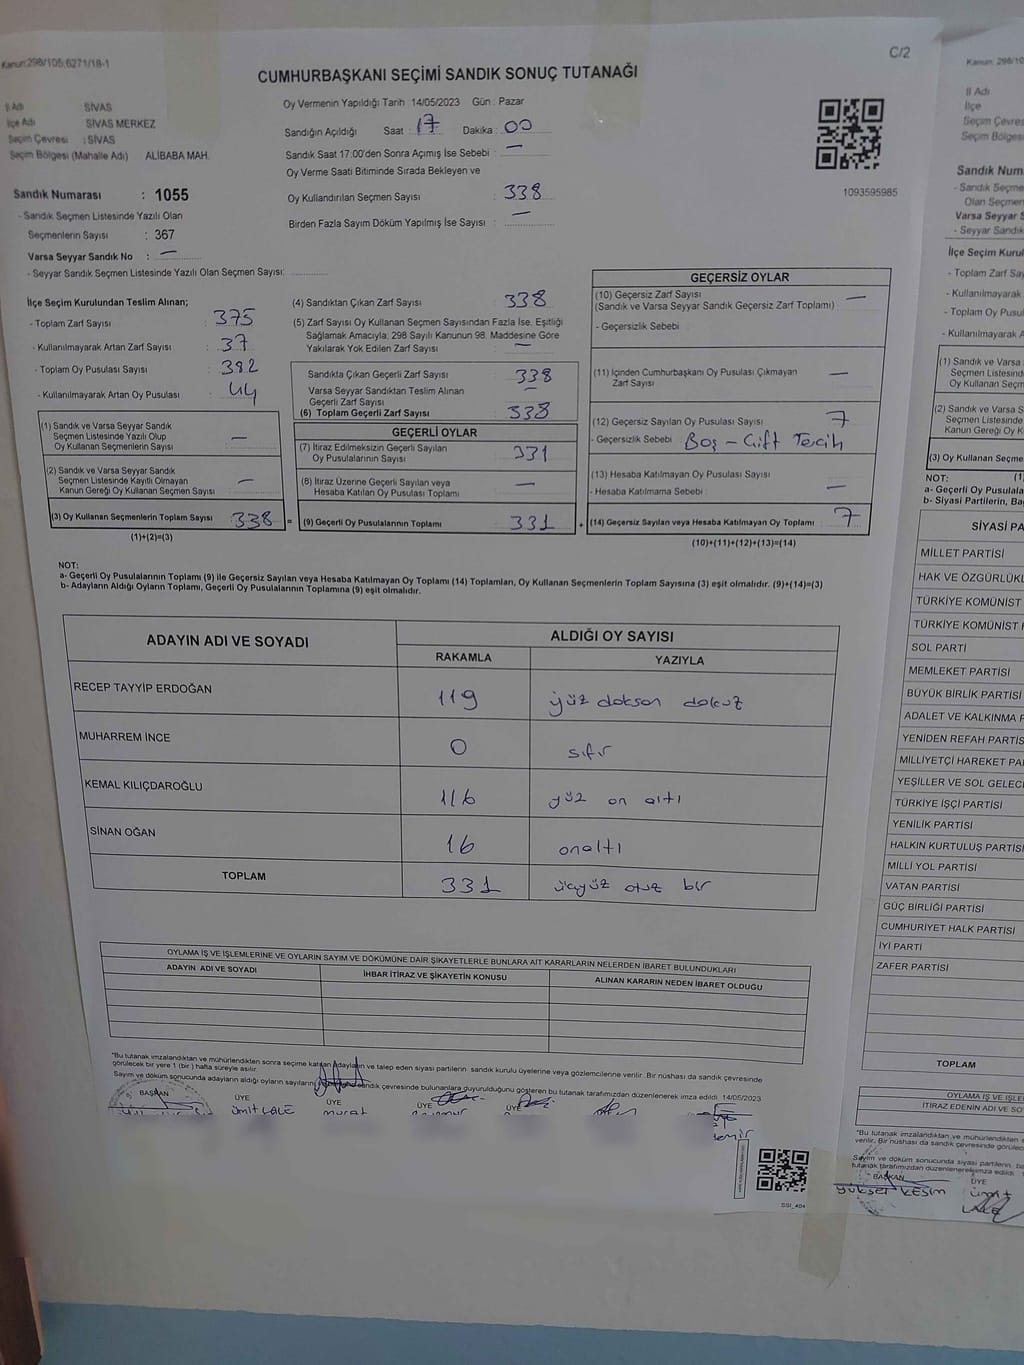 Kanun:298/105;6271/18-1
C/2
CUMHURBAŞKANI SEÇİMİ SANDIK SONUÇ TUTANAĞI
İl Adı SİVAS
İlçe Adı SİVAS MERKEZ
Seçim Çevresi : SİVAS
Seçim Bölgesi (Mahalle Adı) ALİBABA MAH.
Oy Vermenin Yapıldığı Tarih : 14/05/2023 Gün : Pazar
Sandığın Açıldığı Saat : 17 Dakika : 00
Sandık Saat 17:00'den Sonra Açımış İse Sebebi : —
Oy Verme Saati Bitiminde Sırada Bekleyen ve
Oy Kullandırılan Seçmen Sayısı : 338
Birden Fazla Sayım Döküm Yapılmış İse Sayısı : —
1093595985
Sandık Numarası : 1055
- Sandık Seçmen Listesinde Yazılı Olan
Seçmenlerin Sayısı : 367
Varsa Seyyar Sandık No : —
- Seyyar Sandık Seçmen Listesinde Yazılı Olan Seçmen Sayısı:
İlçe Seçim Kurulundan Teslim Alınan;
- Toplam Zarf Sayısı : 375
- Kullanılmayarak Artan Zarf Sayısı : 37
- Toplam Oy Pusulası Sayısı : 382
- Kullanılmayarak Artan Oy Pusulası : 44
(1) Sandık ve Varsa Seyyar Sandık
Seçmen Listesinde Yazılı Olup
Oy Kullanan Seçmenlerin Sayısı —
(2) Sandık ve Varsa Seyyar Sandık
Seçmen Listesinde Kayıtlı Olmayan
Kanun Gereği Oy Kullanan Seçmen Sayısı —
(3) Oy Kullanan Seçmenlerin Toplam Sayısı 338 =
(1)+(2)=(3)
(4) Sandıktan Çıkan Zarf Sayısı : 338
(5) Zarf Sayısı Oy Kullanan Seçmen Sayısından Fazla İse, Eşitliği
Sağlamak Amacıyla; 298 Sayılı Kanunun 98. Maddesine Göre
Yakılarak Yok Edilen Zarf Sayısı : —
Sandıkta Çıkan Geçerli Zarf Sayısı : 338
Varsa Seyyar Sandıktan Teslim Alınan
Geçerli Zarf Sayısı —
(6) Toplam Geçerli Zarf Sayısı : 338
GEÇERLİ OYLAR
(7) İtiraz Edilmeksizin Geçerli Sayılan
Oy Pusulalarının Sayısı 331
(8) İtiraz Üzerine Geçerli Sayılan veya
Hesaba Katılan Oy Pusulası Toplamı —
(9) Geçerli Oy Pusulalarının Toplamı 331 +
GEÇERSİZ OYLAR
(10) Geçersiz Zarf Sayısı
(Sandık ve Varsa Seyyar Sandık Geçersiz Zarf Toplamı) —
- Geçersizlik Sebebi :
(11) İçinden Cumhurbaşkanı Oy Pusulası Çıkmayan
Zarf Sayısı —
(12) Geçersiz Sayılan Oy Pusulası Sayısı 7
- Geçersizlik Sebebi : Boş - Çift Tercih
(13) Hesaba Katılmayan Oy Pusulası Sayısı
- Hesaba Katılmama Sebebi : —
(14) Geçersiz Sayılan veya Hesaba Katılmayan Oy Toplamı : 7
(10)+(11)+(12)+(13)=(14)
NOT:
a- Geçerli Oy Pusulalarının Toplamı (9) ile Geçersiz Sayılan veya Hesaba Katılmayan Oy Toplamı (14) Toplamları, Oy Kullanan Seçmenlerin Toplam Sayısına (3) eşit olmalıdır. (9)+(14)=(3)
b- Adayların Aldığı Oyların Toplamı, Geçerli Oy Pusulalarının Toplamına (9) eşit olmalıdır.
ADAYIN ADI VE SOYADI ALDIĞI OY SAYISI
RAKAMLA YAZIYLA
RECEP TAYYİP ERDOĞAN 119 yüz dokson dokuz
MUHARREM İNCE 0 sıfır
KEMAL KILIÇDAROĞLU 116 yüz on altı
SİNAN OĞAN 16 onaltı
TOPLAM 331 üçyüz otuz bir
OYLAMA İŞ VE İŞLEMLERİNE VE OYLARIN SAYIM VE DÖKÜMÜNE DAİR ŞİKAYETLERLE BUNLARA AİT KARARLARIN NELERDEN İBARET BULUNDUKLARI
ADAYIN ADI VE SOYADI İHBAR İTİRAZ VE ŞİKAYETİN KONUSU ALINAN KARARIN NEDEN İBARET OLDUĞU
"Bu tutanak imzalandıktan ve mühürlendikten sonra seçime katılan adayların ve talep eden siyasi partilerin sandık kurulu üyelerine veya gözlemcilerine verilir. Bir nüshası da sandık çevresinde
görülecek bir yere 1 (bir) hafta süreyle asılır.
Sayım ve döküm sonucunda adayların aldığı oyların sayılarını sandık çevresinde bulunanlara duyurulduğunu gösteren bu tutanak tarafımızdan düzenlenerek imza edildi. 14/05/2023
BAŞKAN ÜYE ÜYE ÜYE ÜYE
ümit LALE murat
SSI_404
Kanun: 298/10
İl Adı
İlçe
Seçim Çevres
Seçim Bölges
Sandık Num
- Sandık Seçmen
Olan Seçmen
Varsa Seyyar S
- Seyyar Sandık
İlçe Seçim Kurul
- Toplam Zarf Say
- Kullanılmayarak
- Toplam Oy Pusul
- Kullanılmayarak A
(1) Sandık ve Varsa
Seçmen Listesind
Oy Kullanan Seçm
(2) Sandık ve Varsa
Seçmen Listesinde
Kanun Gereği Oy K
(3) Oy Kullanan Seçme
(1
NOT:
a- Geçerli Oy Pusulala
b- Siyasi Partilerin, Ba
SİYASİ PA
MİLLET PARTİSİ
HAK VE ÖZGÜRLÜKL
TÜRKİYE KOMÜNİST
TÜRKİYE KOMÜNİST H
SOL PARTİ
MEMLEKET PARTİSİ
BÜYÜK BİRLİK PARTİSİ
ADALET VE KALKINMA P
YENİDEN REFAH PARTİS
MİLLİYETÇİ HAREKET PA
YEŞİLLER VE SOL GELECE
TÜRKİYE İŞÇİ PARTİSİ
YENİLİK PARTİSİ
HALKIN KURTULUŞ PARTİSİ
MİLLİ YOL PARTİSİ
VATAN PARTİSİ
GÜÇ BİRLİĞİ PARTİSİ
CUMHURİYET HALK PARTİSİ
İYİ PARTİ
ZAFER PARTİSİ
TOPLAM
OYLAMA İŞ VE İŞLE
İTİRAZ EDENİN ADI VE SO
"Bu tutanak imzalandıktan ve mühürlendikten
verilir. Bir nüshası da sandık çevresinde görülece
Sayım ve döküm sonucunda siyasi partilerin, ba
tutanak tarafımızdan düzenlenerek imza edildi
BAŞKAN ÜYE
Yüksel KESİM ümit
LALE